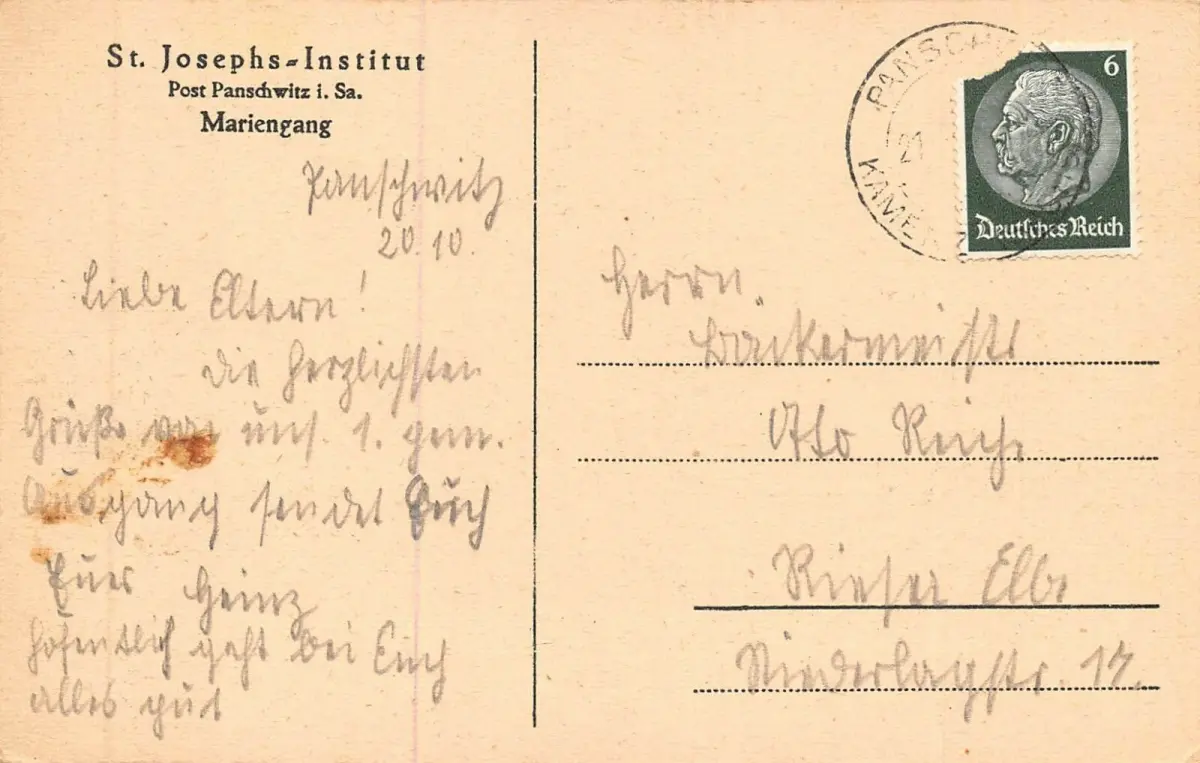 St. Josephs-Institut
Post Panschwitz i. Sa.
Mariengang
Panschwitz
20.10.
Liebe Eltern!
Die herzlichsten
Grüße von uns. 1. gem.
Ausgang sendet Euch
Euer Heinz
Hofentlich geht bei Euch
alles gut
PANSCH
21
KAMENZ
6
Deutsches Reich
Herrn
Bäckermeister
Otto Reiche
Riesa Elbe
Niederlagstr. 17.